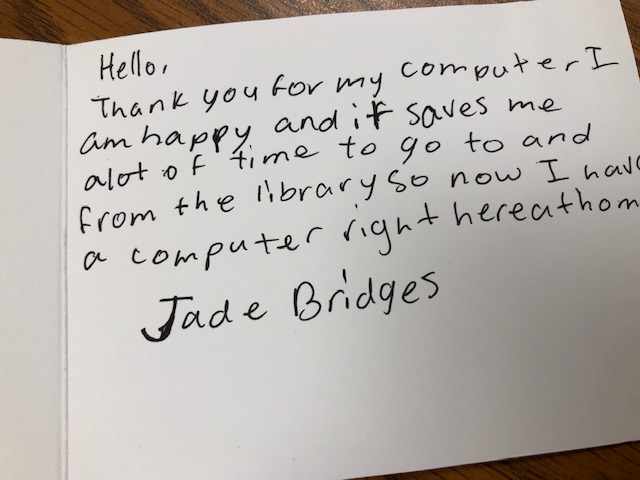 Hello,
Thank you for my computer I
am happy and it saves me
alot of time to go to and
from the library so now I have
a computer right here at hom
Jade Bridges